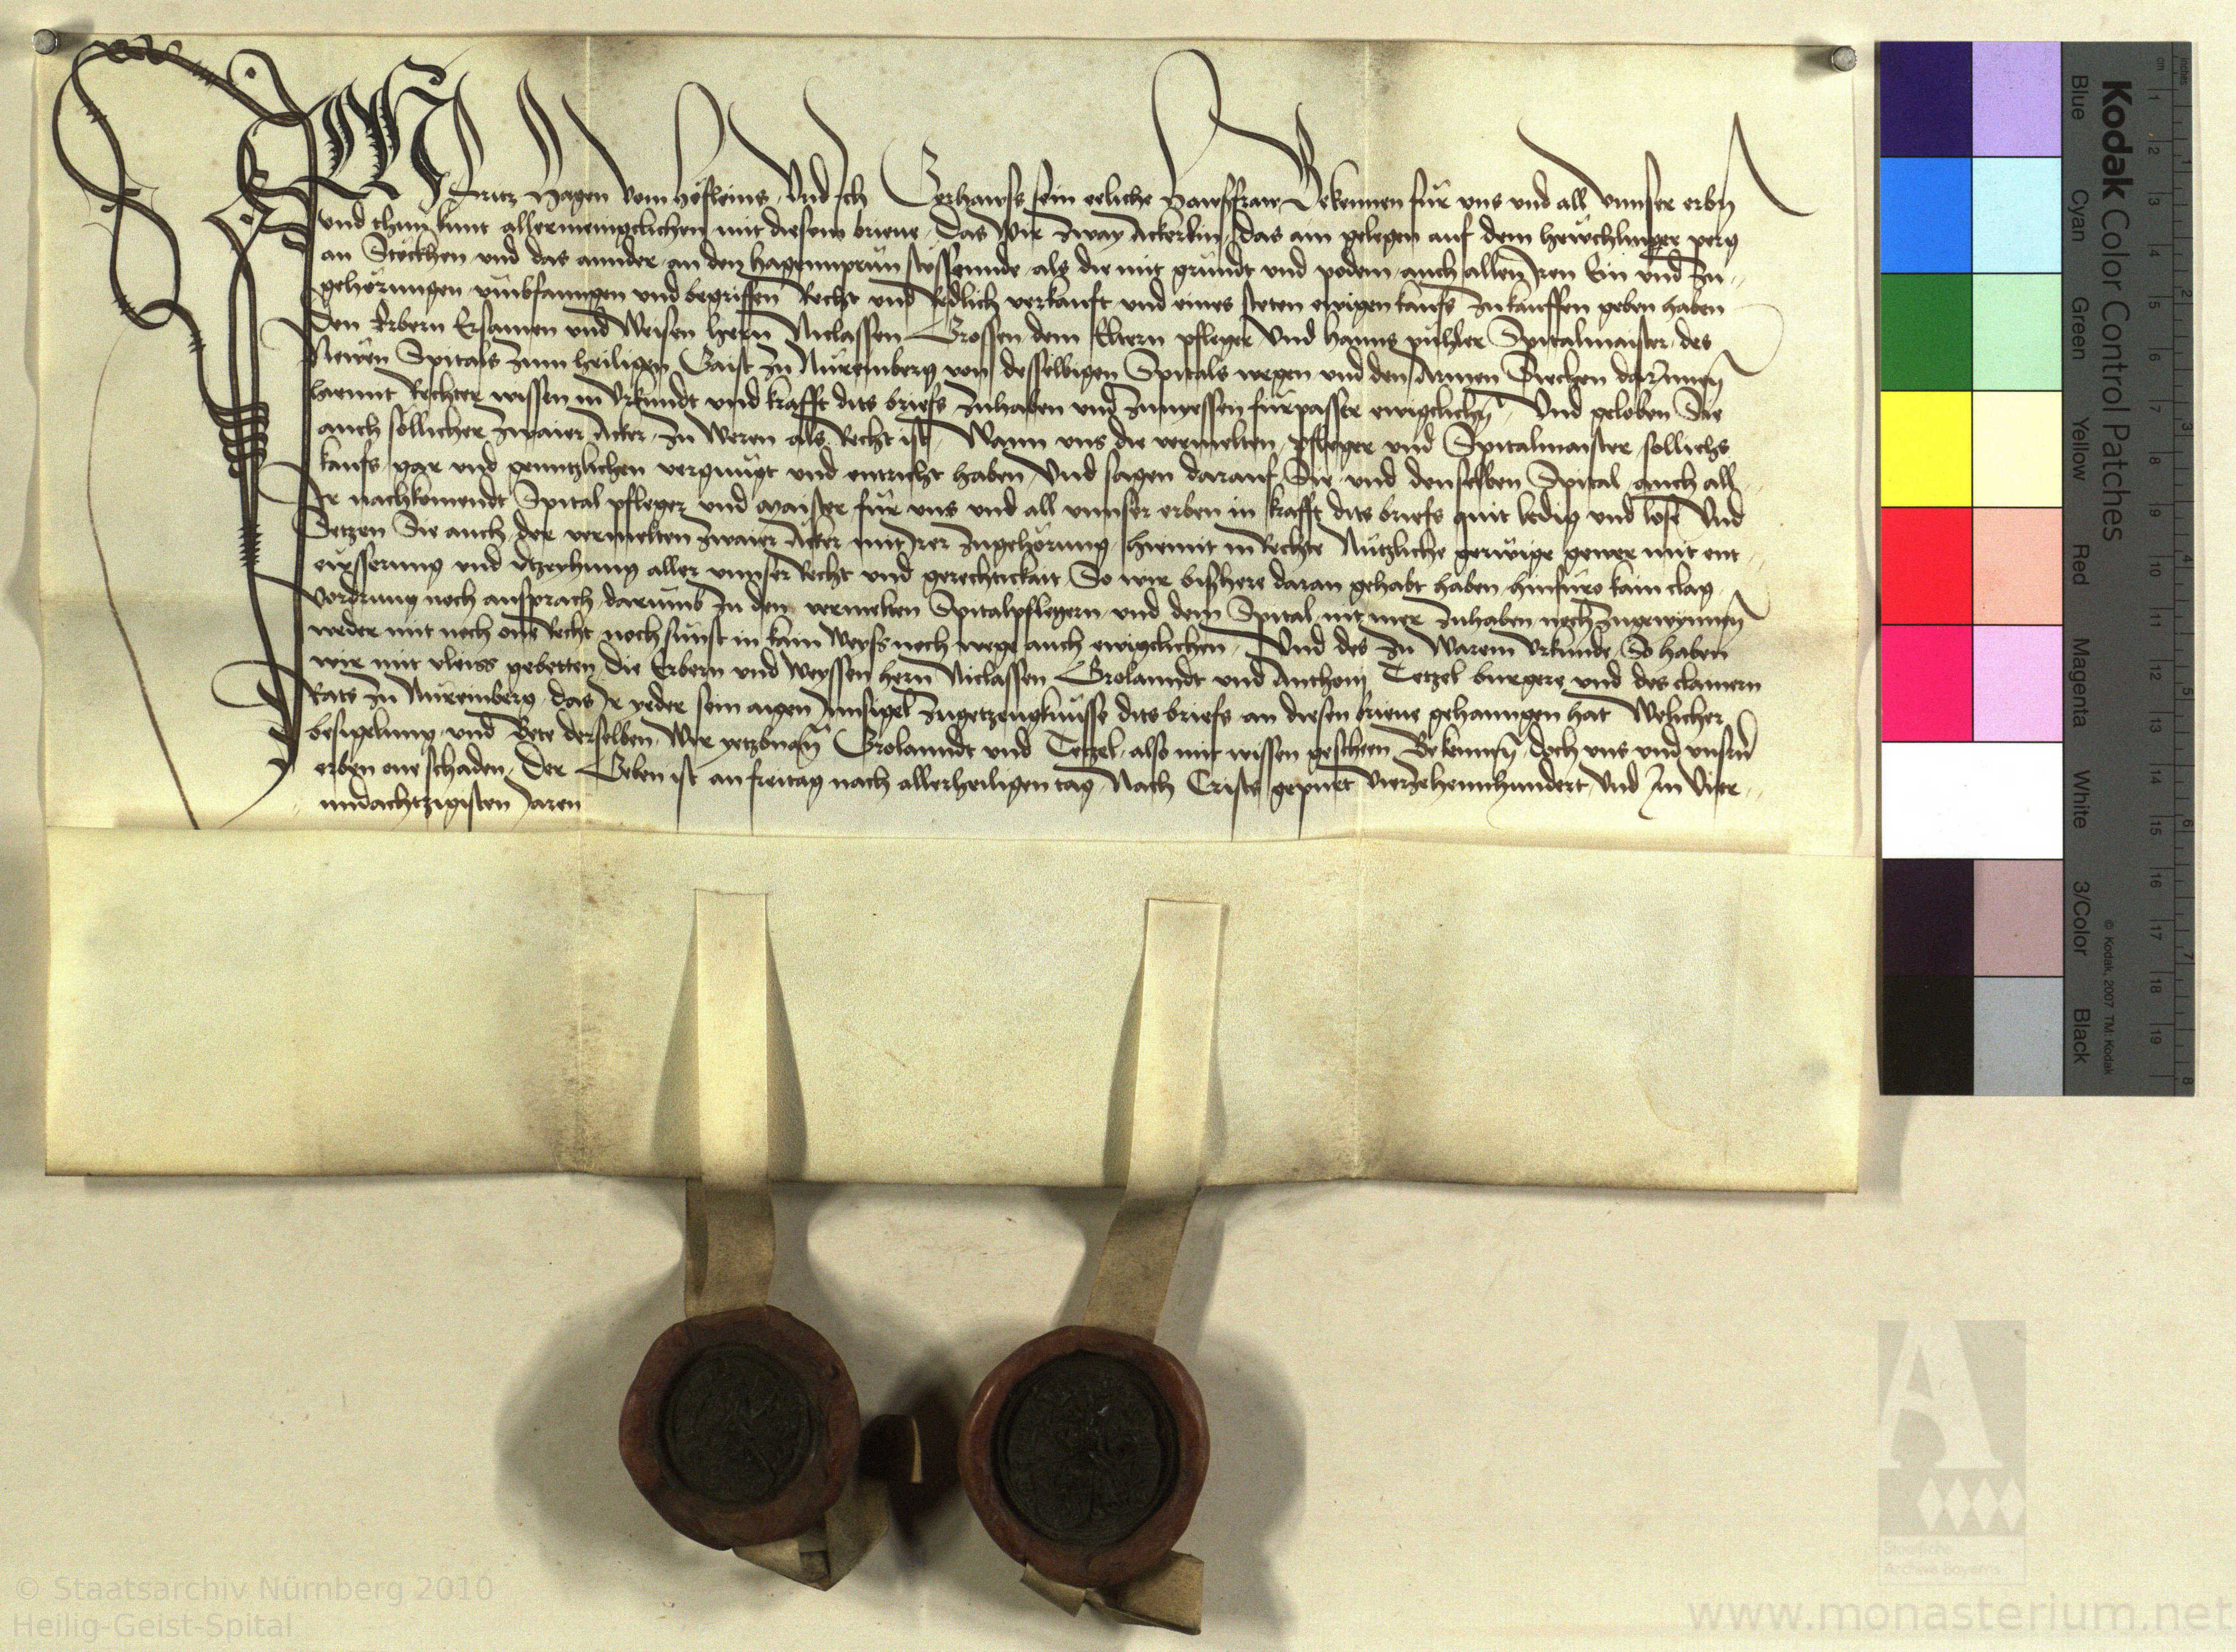 Ich Fritz Hagen vom höfleins Und Ich Gerhawss sein eeliche Hawsfraw Bekennen für uns und all unnser erbñ
und thun kunt allermeingclichen mit diesem brieue, das Wir zway Ackerlin, das ain gelegen auf dem hewchlinger perg
an Stöckhen und das annder an den hagennprun stossennde, als die mit grundt und podem, auch allen Iren Ein und Zu-
gehörungen umbfanngen und begriffen Recht und Redlich verkauft und eines steten ewigen kaufs zukauffen geben haben
Den Erbern Ersamen und Weisen hern Niclassen Grossen dem Eltern pfleger Und Hanns puhler Spitalmaister des
Newen Spitals zum heiligen Gaist zu Nüremberg von desselbigen Spitals wegen und den Armen Siechen darInnen
hiemit Rechter wissen in Urkundt und krafft dits briefs zuhaben und zunyessen fürpasser ewigclichn, Und geloben Sie
auch söllicher zwaier Acker zu Weren als Recht ist, Wann uns die vermelten pfleger und Spitalmaister sollichs
kaufs gar und genntzlichen vergnügt und entricht haben, Und sagen darauf Sie und denselben Spital auch all
Ir nachkomendt Spital pfleger und maister für uns und all unnser erben in krafft dits briefs quit ledig und lose Und
Setzen Sie auch der vermelten zwaier Acker mit Irer Zugehörung hiemit in Rechte Nützliche gerüige gewer mit ent-
eusserung und vtzeyhung aller unnser Recht und gerechtickait So wir bisshere daran gehabt haben hinfüro kain clag
Vordrung noch ansprach darumb zu den vermelten Spitalpflegern und dem Spital nit mer zuhaben noch zugewynnen
weder mit noch one Recht noch sunst in kain Weyss noch wege auch ewigclichen, Und des zu Warem Urkunde, So haben
wir mit vleiss gebetten die Erbern und Weyssen hern Niclassen Grolanndt und Anthoni Tetzel burgere und des clainern
Rats zu Nüremberg, das Ir yeder sein aigen Innsigel zugetzeugknusse dits briefs an diesen brieue gehanngen hat Welicher
besigelung und Bete derselben, Wir yetzbnañ Grolanndt und Tetzel, also mit wissen gescheen Bekennen, doch uns und unsrn
erben one schaden, Der Geben ist an freitag nach allerheiligen tag Nach Crists gepurt Vierzehennhundert Und Im Vier-
undachtzigisten Jaren
Kodak Color Control Patches
Blue Cyan Green Yellow Red Magenta White 3/Color Black
© Kodak, 2007 TM: Kodak
cm 1 2 3 4 5 6 7 8 9 10 11 12 13 14 15 16 17 18 19
inches 1 2 3 4 5 6 7 8
A
Staatliche
Archive Bayerns
© Staatsarchiv Nürnberg 2010
Heilig-Geist-Spital
www.monasterium.net